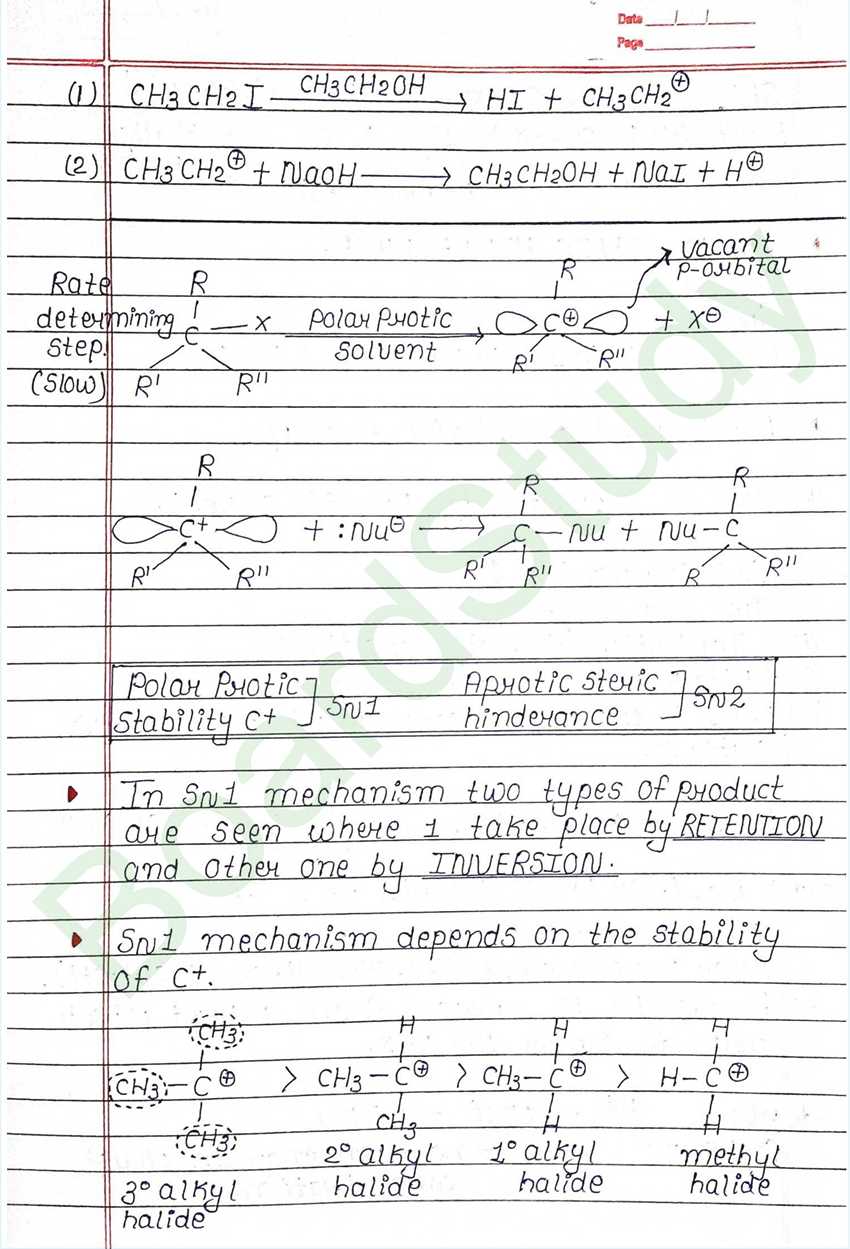 Date / /
Page
(1) CH3CH2I —CH3CH2OH→ HI + CH3CH2⊕
(2) CH3CH2⊕ + NaOH → CH3CH2OH + NaI + H⊕
vacant
p-orbital
Rate
determining
step.
(Slow)
R
C — X
R' R''
Polar Protic
Solvent
R
C⊕ + X⊖
R' R''
R
C+ + :Nu⊖ →
R' R''
R
C — Nu +
R' R''
R
Nu — C
R R''
Polar Protic
Stability C+
SN1
Aprotic Steric
hinderance
SN2
In SN1 mechanism two types of product
are seen where 1 take place by RETENTION
and other one by INVERSION.
SN1 mechanism depends on the stability
of C+.
CH3 H H H
CH3 — C⊕ > CH3 — C⊕ > CH3 — C⊕ > H — C⊕
CH3 CH3 H H
3° alkyl
halide
2° alkyl
halide
1° alkyl
halide
methyl
halide
BoardStudy